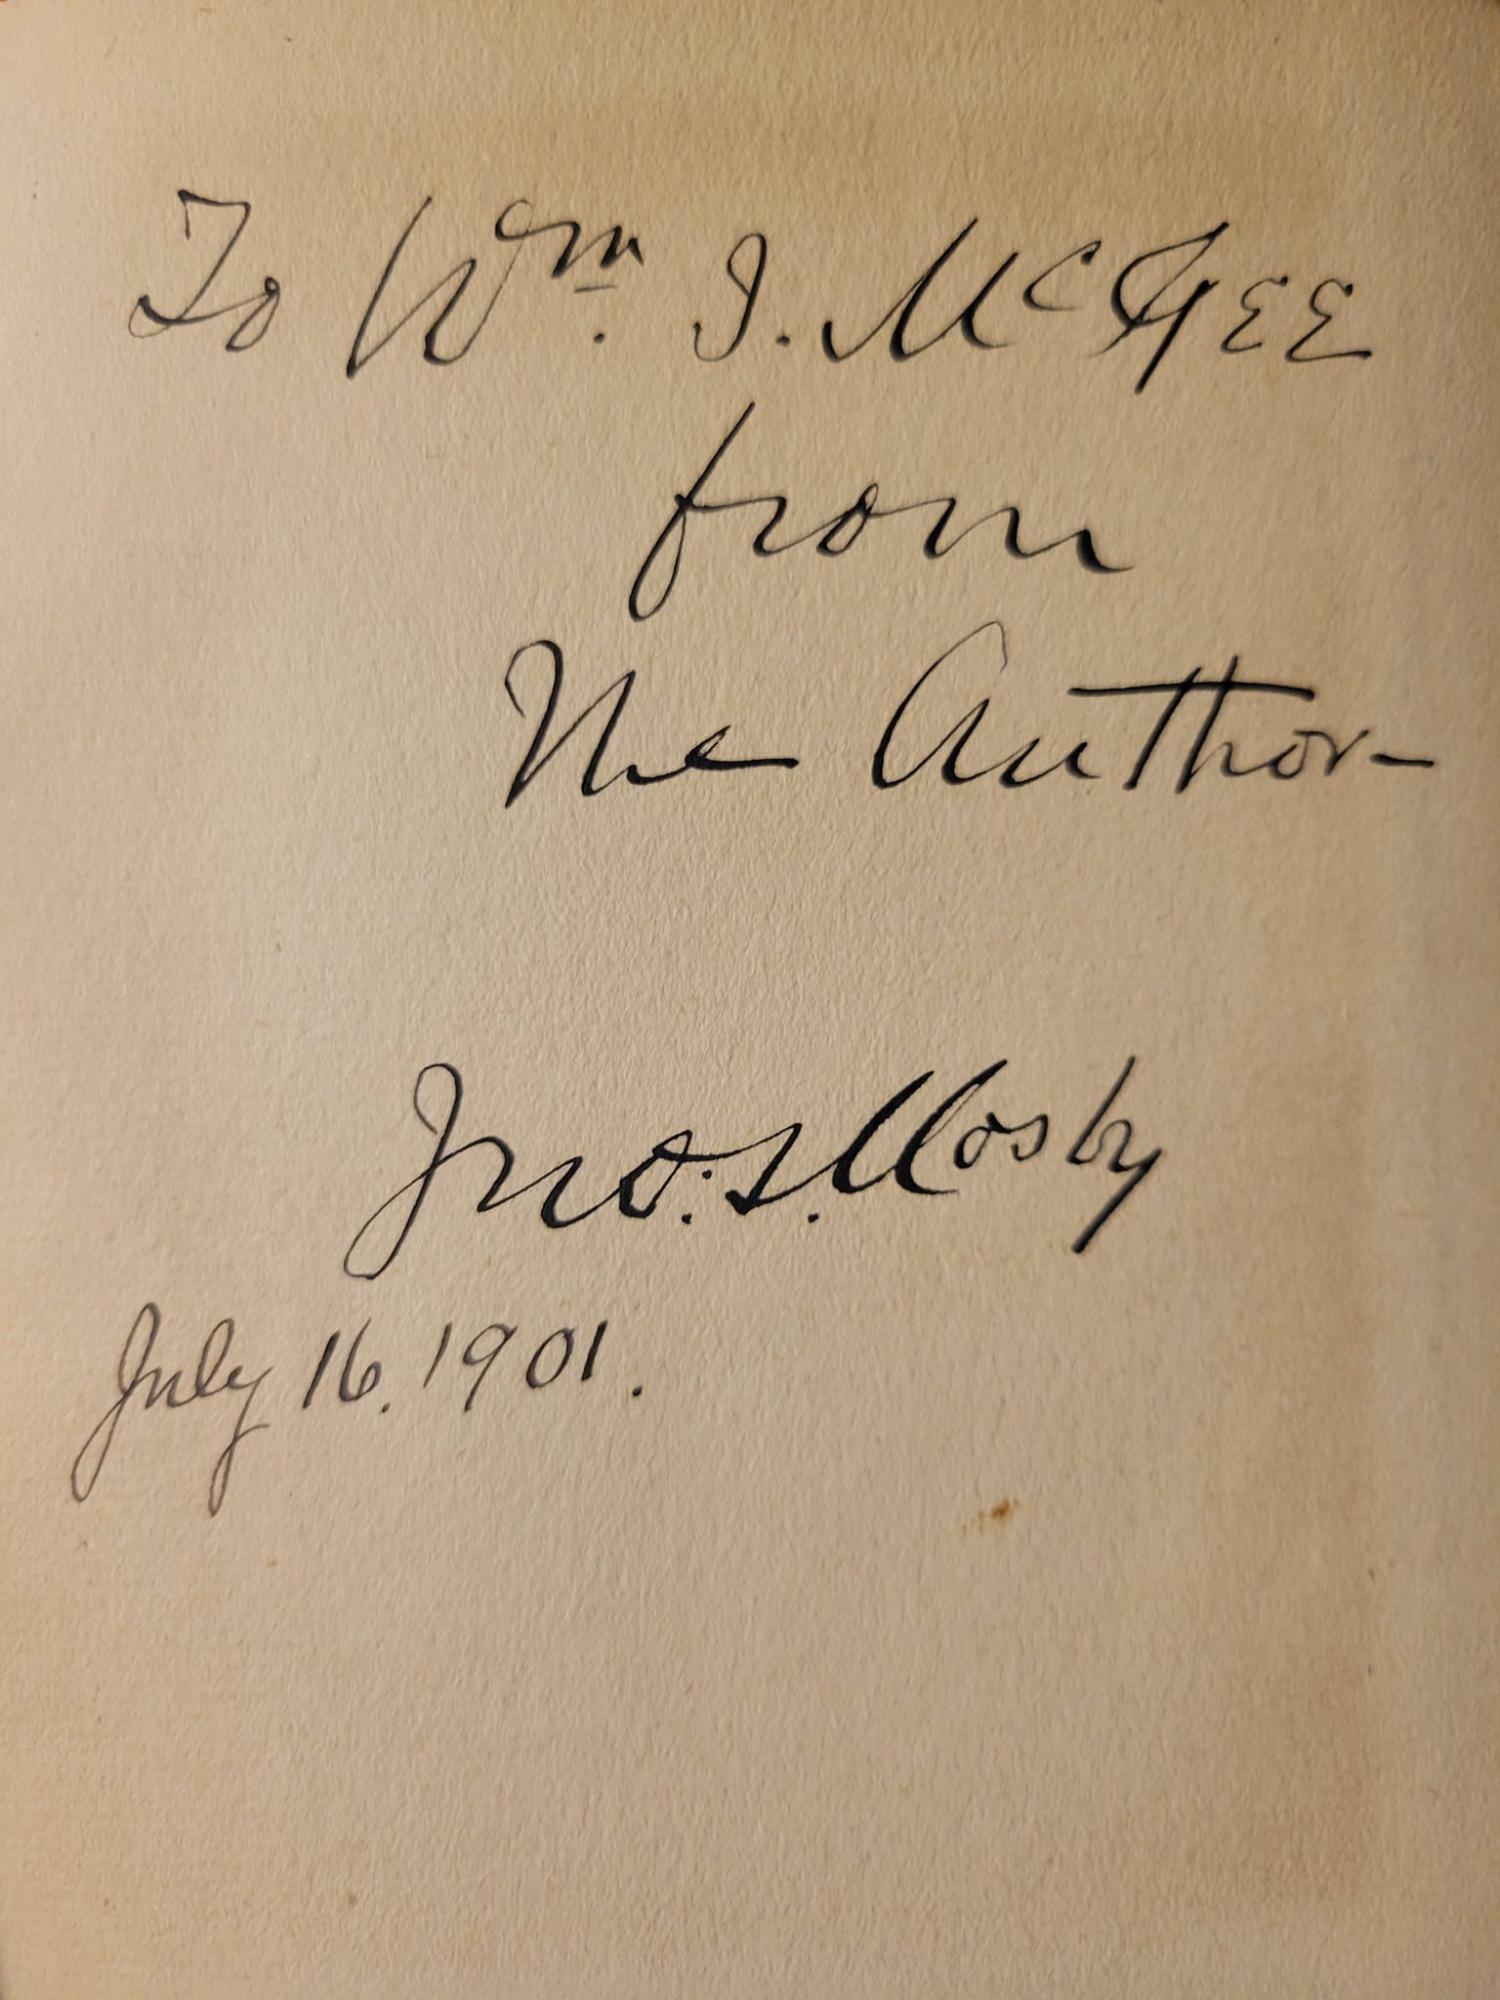 To Wm. I. McGEE
from
The Author-
Jno: S. Mosby
July 16. 1901.